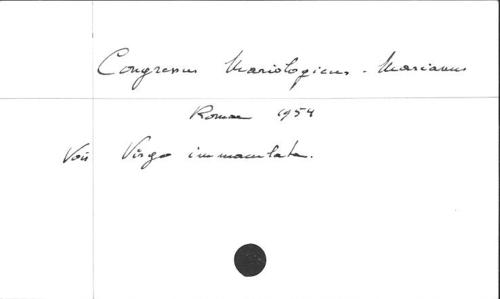 Congressus Mariologicus - Marianus
Romae 1954
Voir Virgo immaculata.